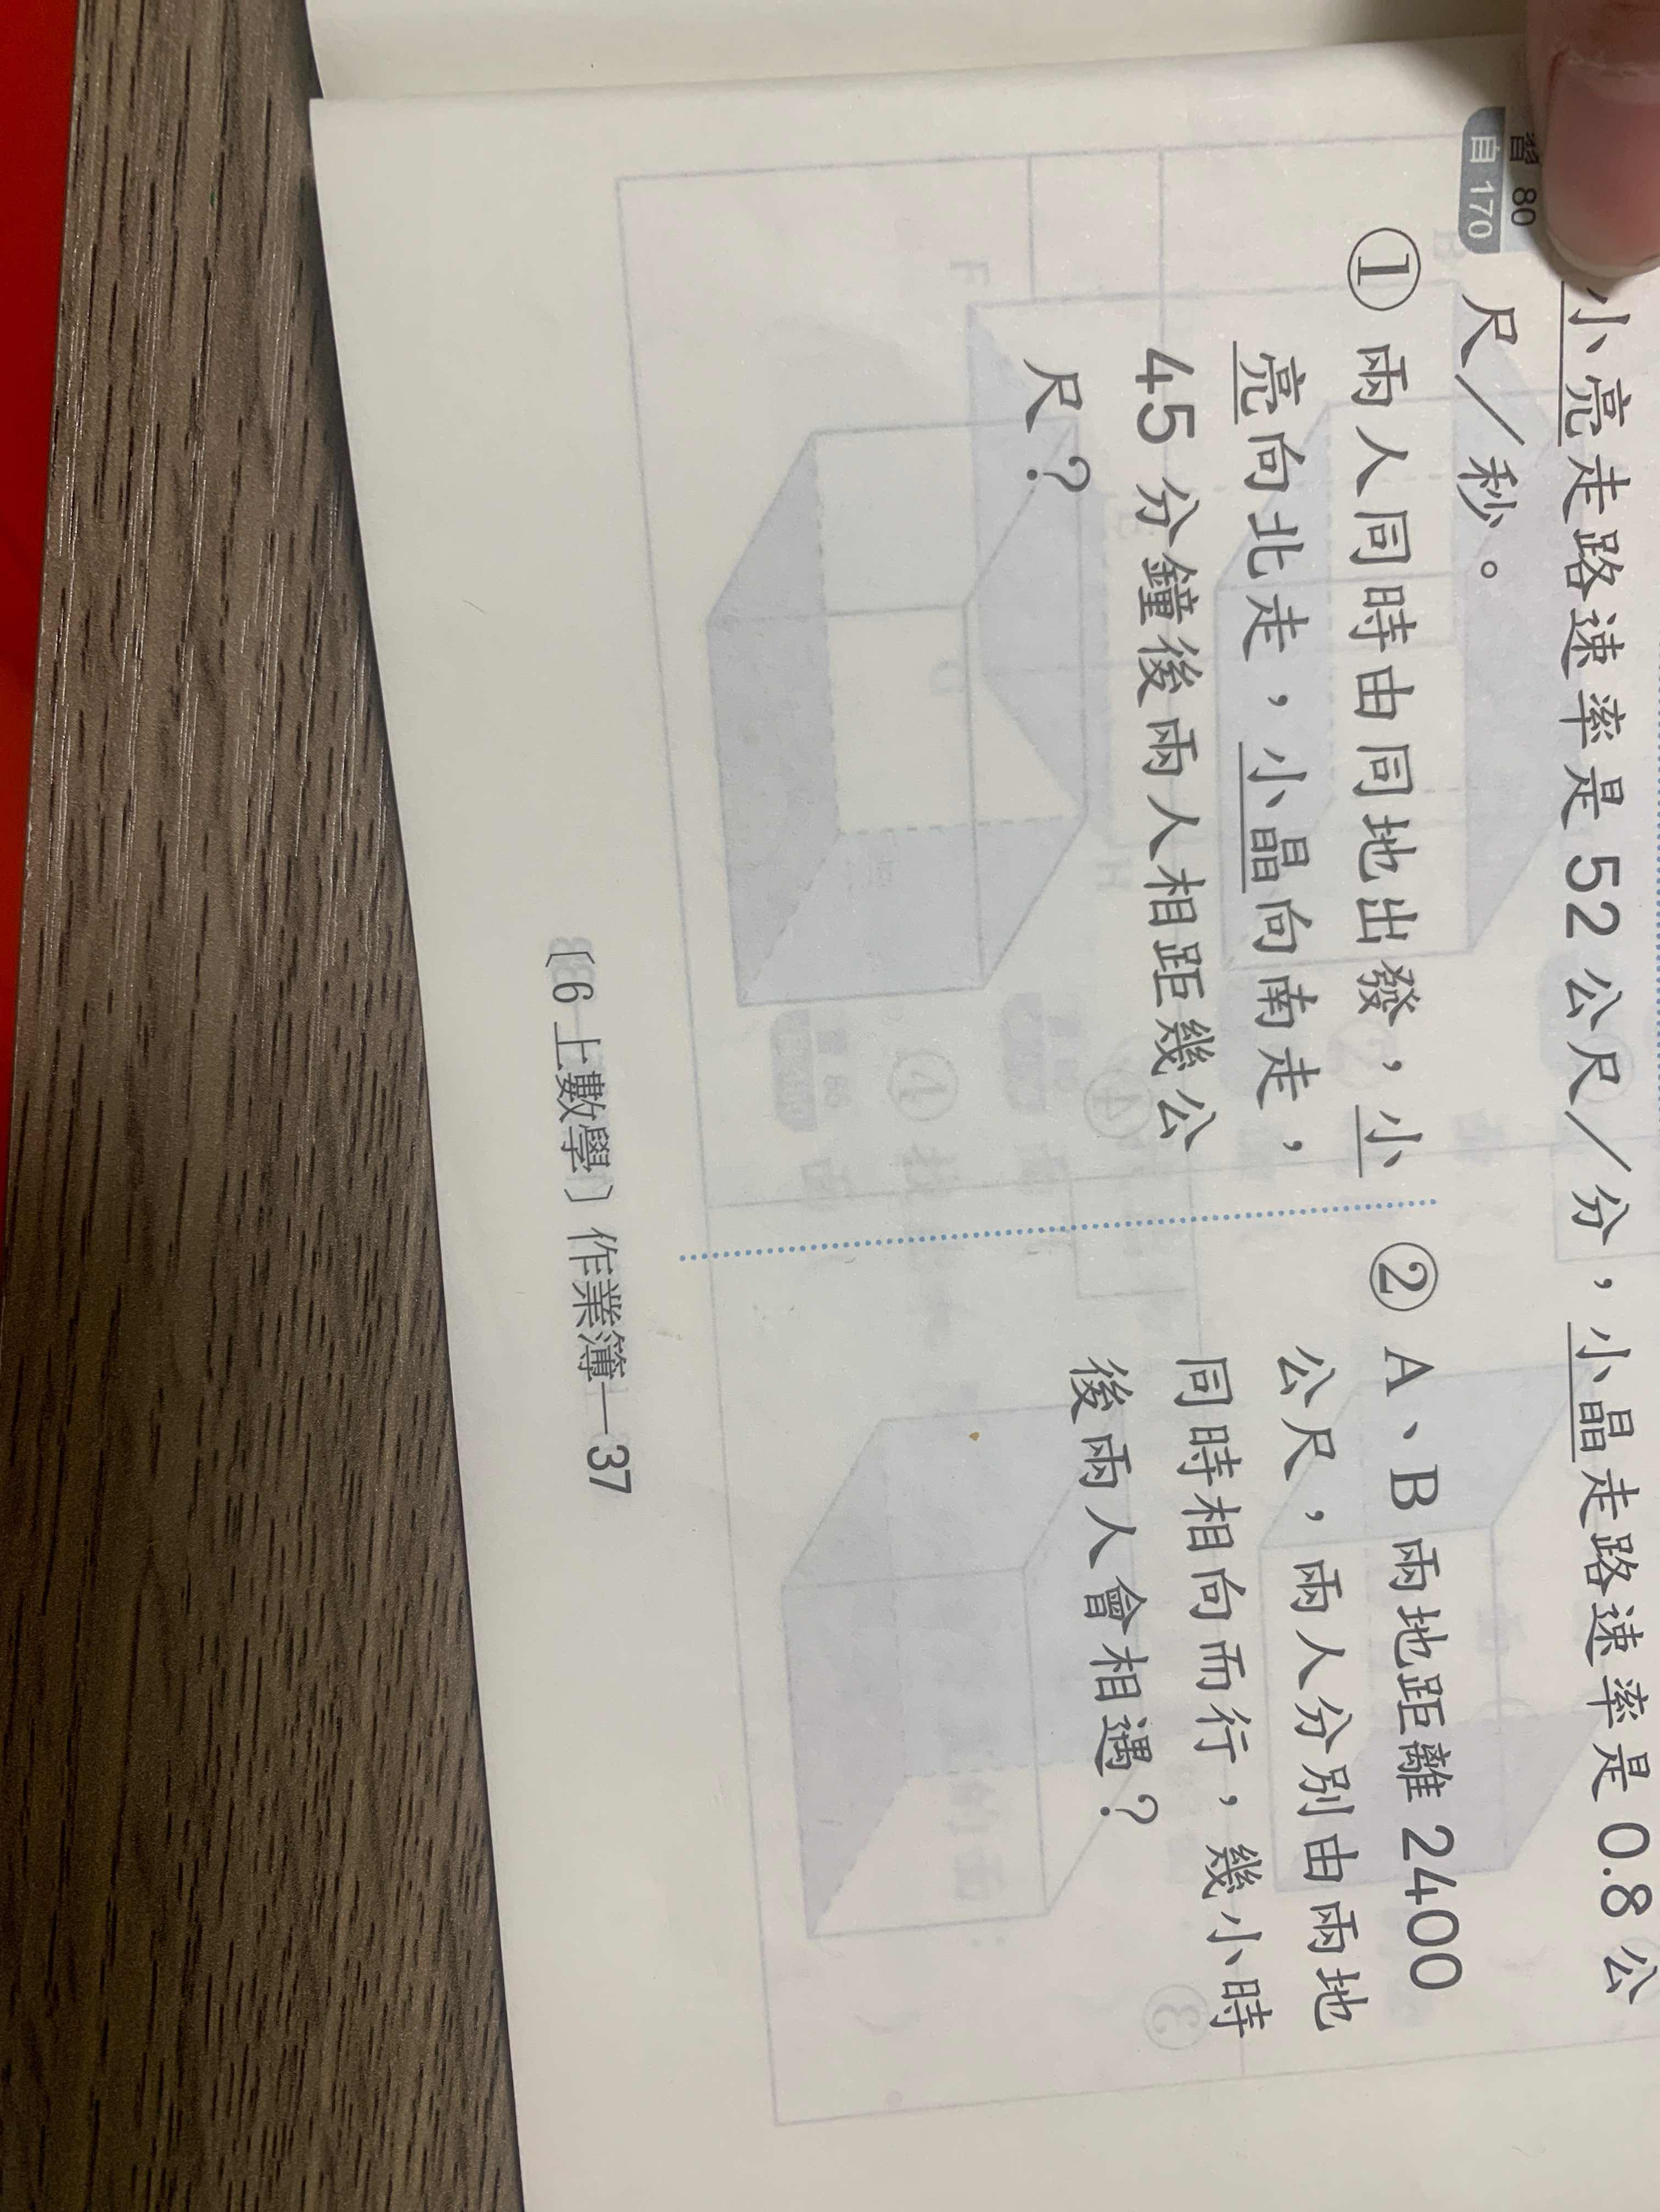 習 80
自 170
小亮走路速率是 52 公尺／分，小晶走路速率是 0.8 公
尺／秒。
① 兩人同時由同地出發，小
亮向北走，小晶向南走，
45 分鐘後兩人相距幾公
尺？
② A、B 兩地距離 2400
公尺，兩人分別由兩地
同時相向而行，幾小時
後兩人會相遇？
〔6 上數學〕作業簿—37